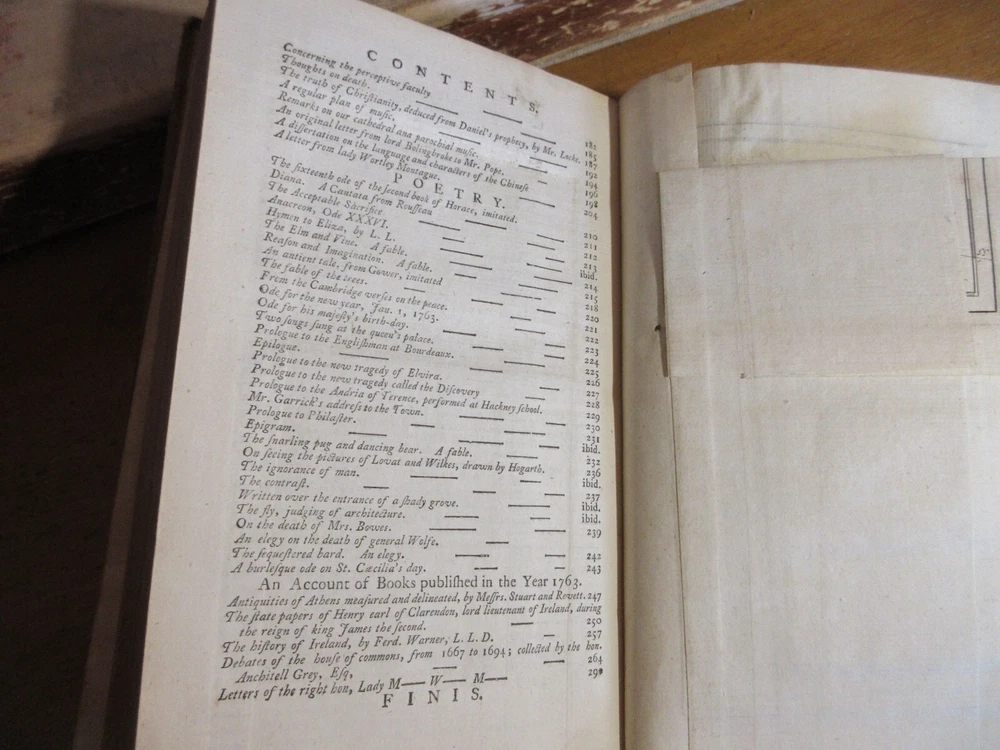 CONTENTS.
Concerning the perceptive faculty — — 180
Thoughts on death. — — 185
The truth of Chriſtianity, deduced from Daniel's prophecy, by Mr. Locke. 187
A regular plan of muſic. — — 192
Remarks on our cathedral and parochial muſic. — 194
An original letter from lord Bolingbroke to Mr. Pope. — 196
A diſſertation on the language and characters of the Chineſe — 198
A letter from lady Wortley Montague. — 204
POETRY.
The ſixteenth ode of the ſecond book of Horace, imitated. — 210
Diana. A Cantata from Rouſſeau — — 211
The Acceptable Sacrifice — — 212
Anacreon, Ode XXXVI. — — 213
Hymen to Eliza, by L. L. — — ibid.
The Elm and Vine. A fable. — — 214
Reaſon and Imagination. A fable. — — 215
An antient tale, from Gower, imitated — — 218
The fable of the trees. — — 220
From the Cambridge verſes on the peace. — — 221
Ode for the new year, Jan. 1, 1763. — — 222
Ode for his majeſty's birth-day. — — 223
Two ſongs ſung at the queen's palace. — — 224
Prologue to the Engliſhman at Bourdeaux. — — 225
Epilogue. — — 226
Prologue to the new tragedy of Elvira. — — 227
Prologue to the new tragedy called the Diſcovery — 228
Prologue to the Andria of Terence, performed at Hackney ſchool. 229
Mr. Garrick's addreſs to the Town. — — 230
Prologue to Philaſter. — — 231
Epigram. — — ibid.
The ſnarling pug and dancing bear. A fable. — 232
On ſeeing the pictures of Lovat and Wilkes, drawn by Hogarth. 236
The ignorance of man. — — ibid.
The contraſt. — — 237
Written over the entrance of a ſhady grove. — — ibid.
The fly, judging of architecture. — — ibid.
On the death of Mrs. Bowes. — — 239
An elegy on the death of general Wolfe. —
The ſequeſtered bard. An elegy. — — 242
A burleſque ode on St. Cæcilia's day. — — 243
An Account of Books publiſhed in the Year 1763.
Antiquities of Athens meaſured and delineated, by Meſſrs. Stuart and Revett. 247
The ſtate papers of Henry earl of Clarendon, lord lieutenant of Ireland, during
the reign of king James the ſecond. — 250
The hiſtory of Ireland, by Ferd. Warner, L. L. D. — 257
Debates of the houſe of commons, from 1667 to 1694; collected by the hon.
Anchitell Grey, Eſq, — — 264
Letters of the right hon, Lady M— W— M—
FINIS.